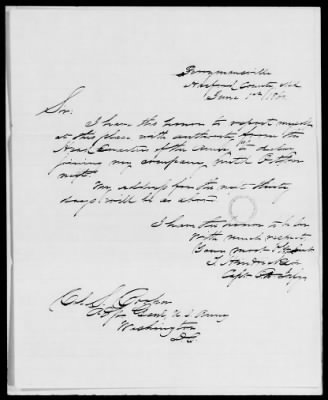 Perrymansville
Harford County, Md
June 1st, 186
Sir:
I have the honor to report myself
at this place with authority from the
Head Quarters of the Army to delay
joining my company until October
next.
My address for the next thirty
days will be as above.
I have the honor to be Sir
With much respect
Your most Obt Servt
Capt
Col. S. Cooper
Adjt Genl, U. S. Army
Washington
D.C.